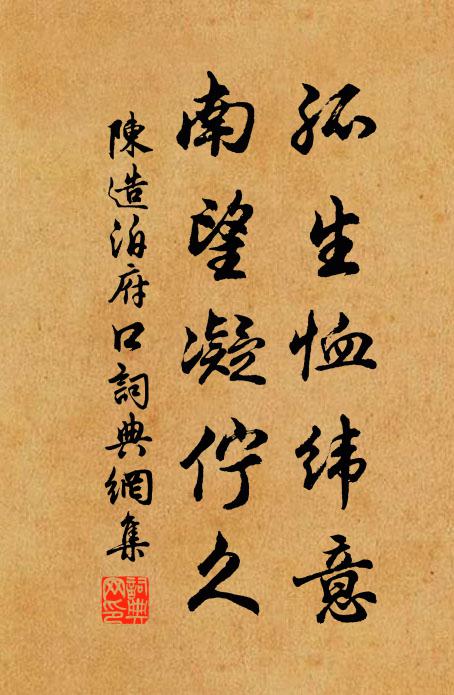 孤生恤緯意
南望凝佇久
陳造泊府口詞典網集
詞典网印